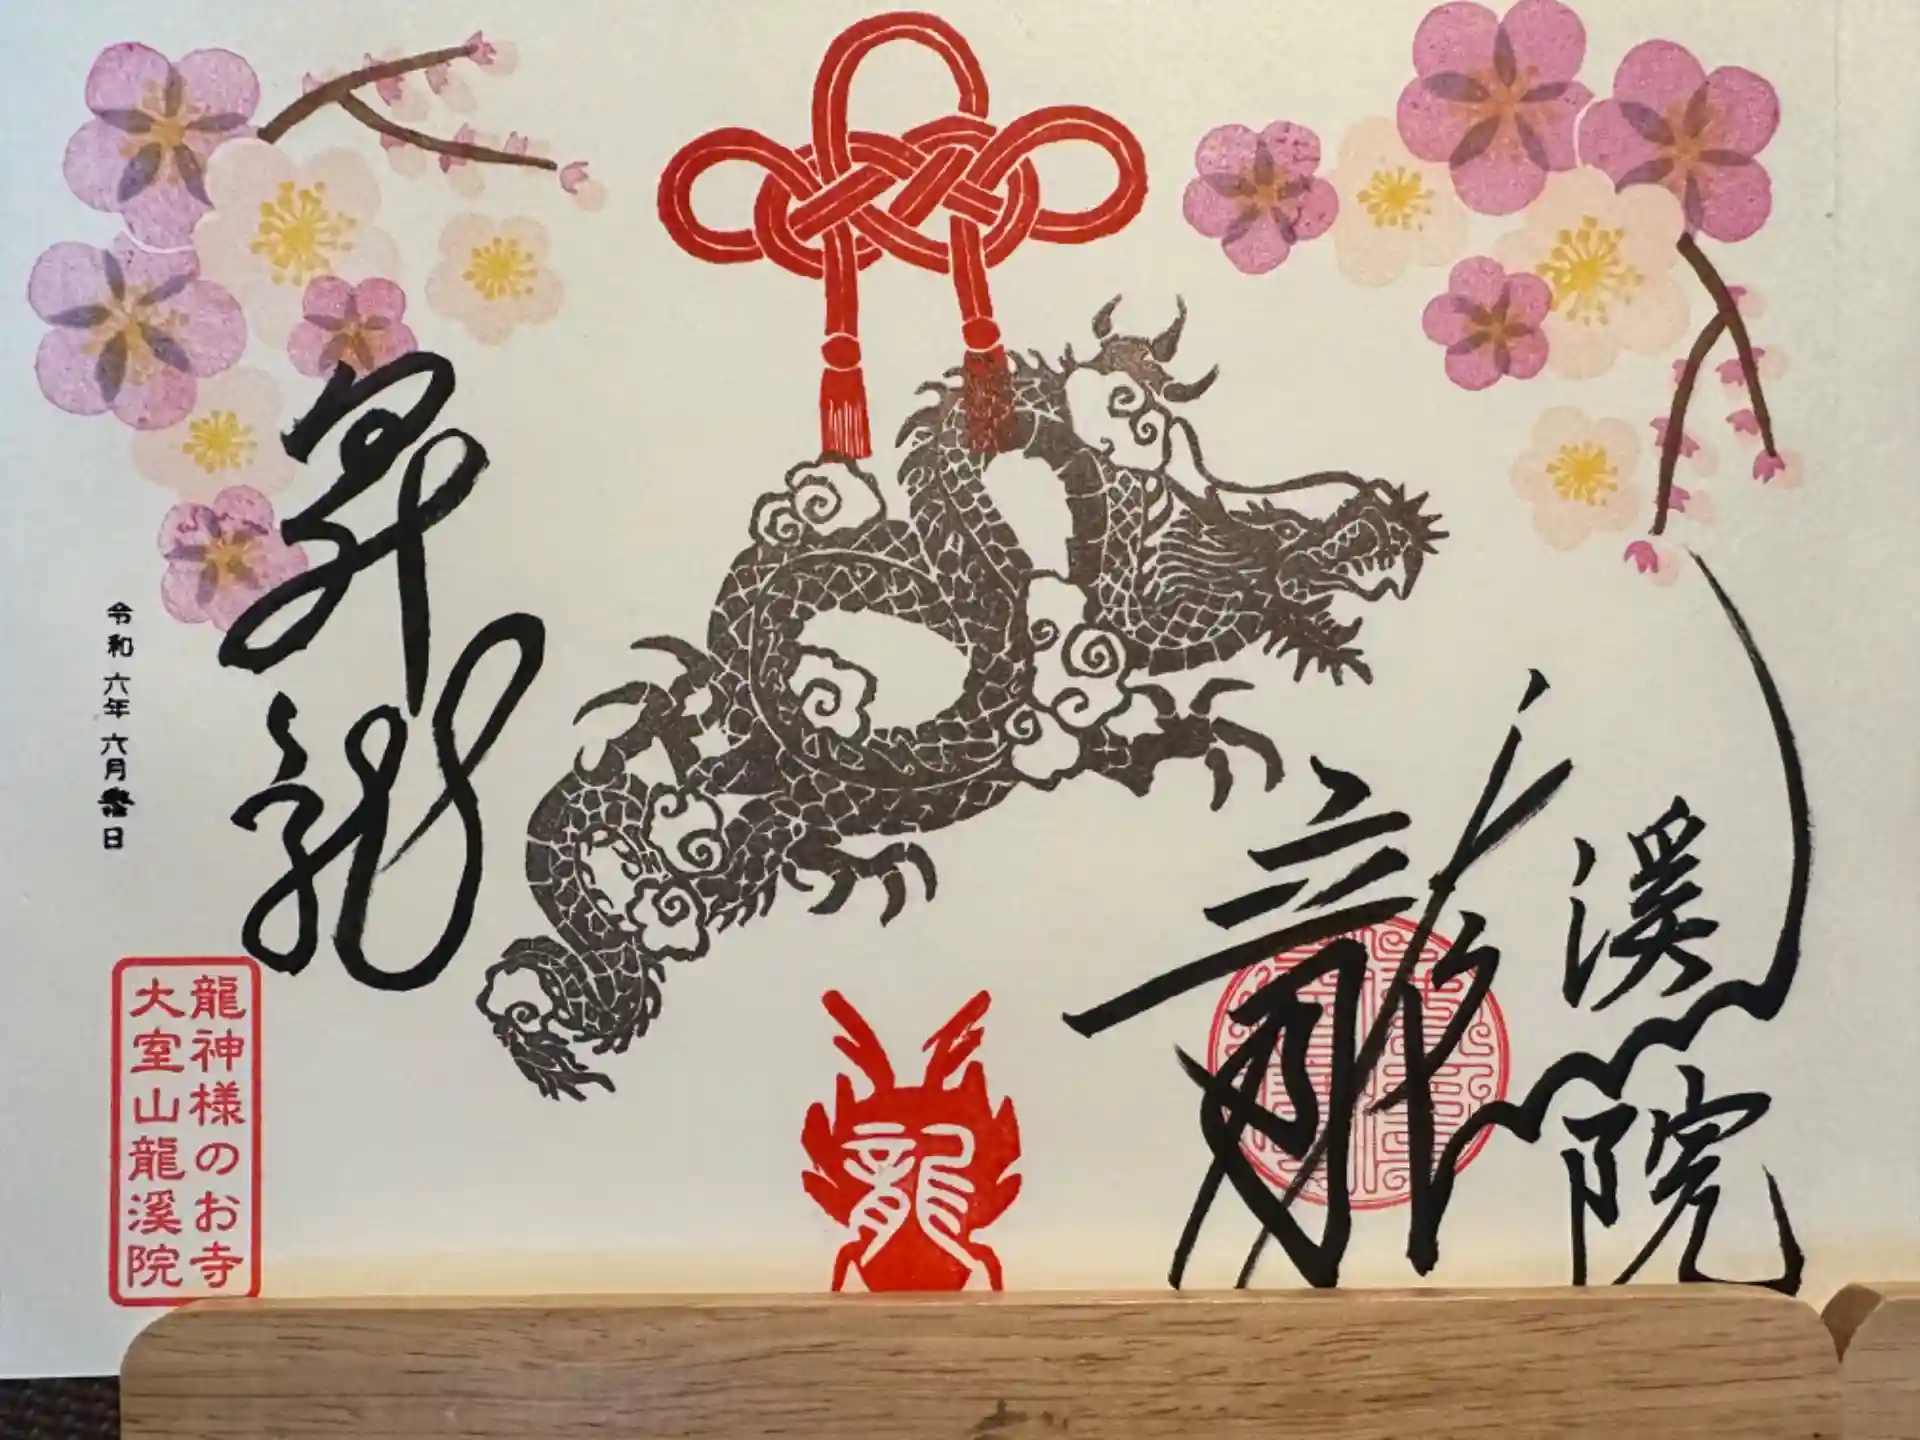 龍
溪
院
龍
昇龍
令和六年六月
日
龍神様のお寺
大室山龍溪院